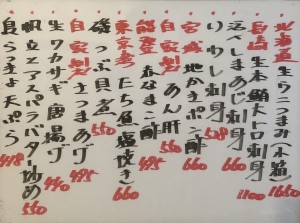 北海道 生ウニつまみ(木箱) 1650
長崎 生本鮪大トロ刺身 1100
ごへしまあじ刺身 660
いわし刺身 528
宮城 地かきポン酢 660
自家製 あん肝 550
能登 赤なまこ酢 495
東京湾 たち魚塩焼き 660
磯つぶ貝煮 550
自家製 さつまあげ 495
生ワカサギ唐揚げ 440
帆立とアスパラバター炒め 550
島らっきょ天ぷら 498